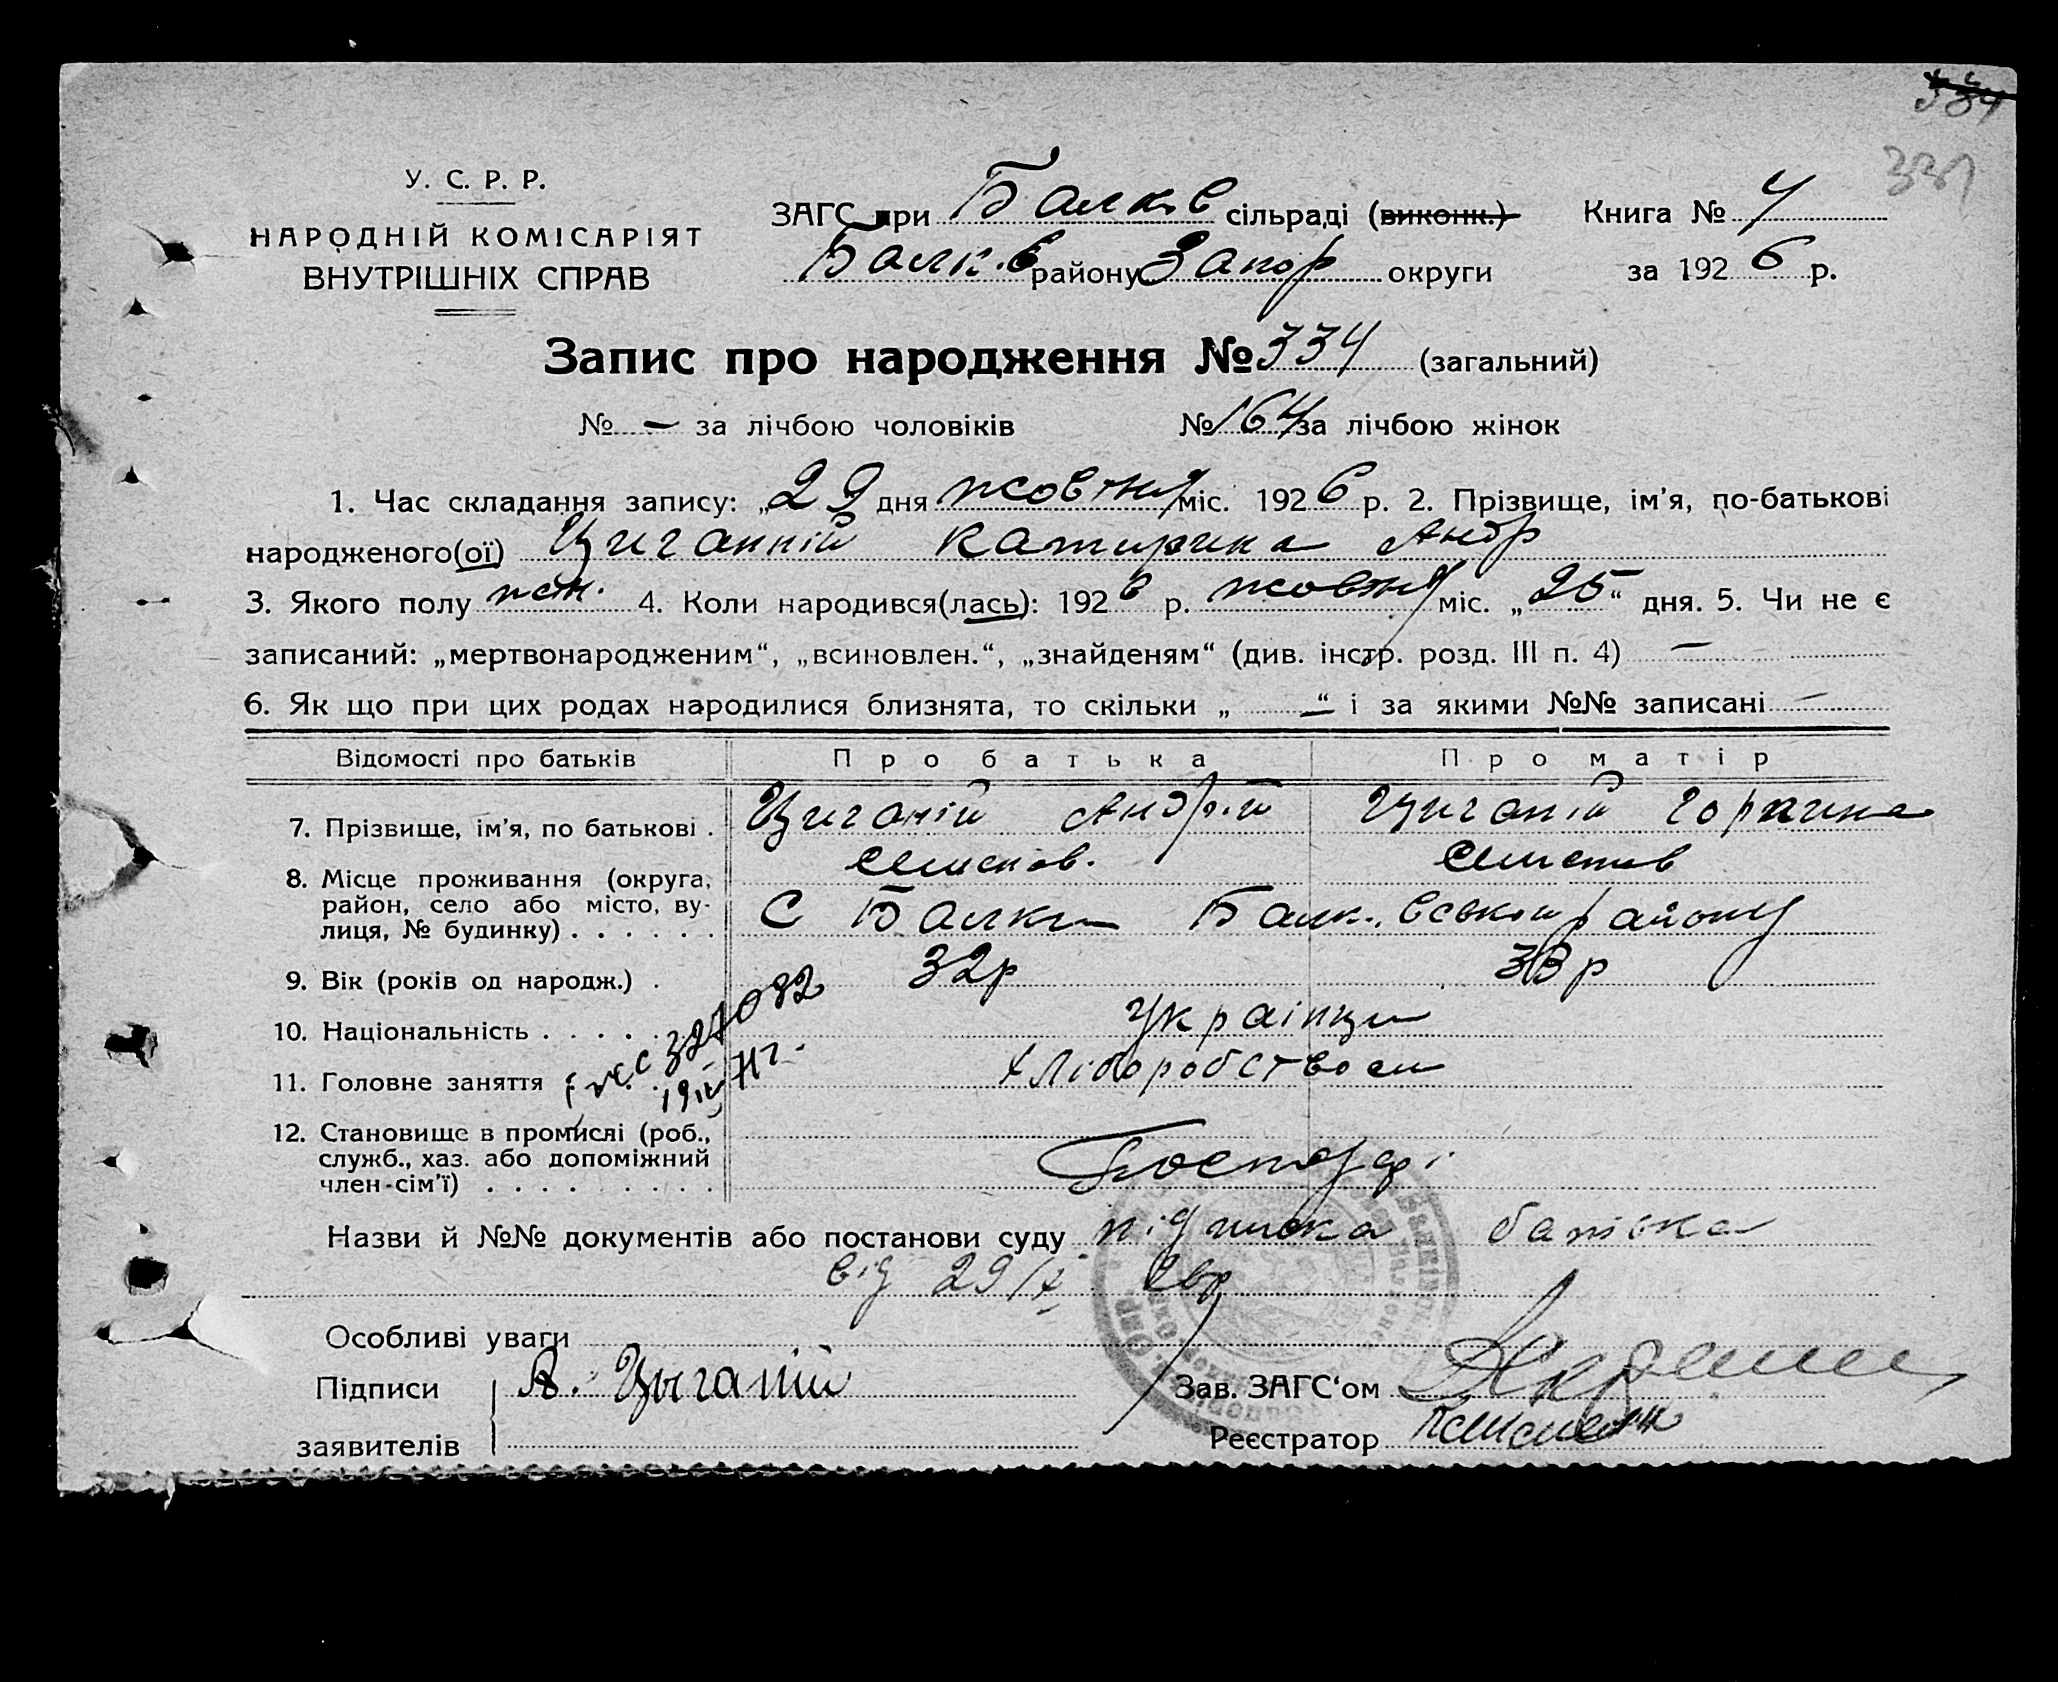 334
331
У. С. Р. Р.
НАРОДНІЙ КОМІСАРІЯТ
ВНУТРІШНІХ СПРАВ
ЗАГС при Балків сільраді (виконк.)
Балк.в району Запор округи
Книга № 4
за 1926 р.
Запис про народження № 334 (загальний)
№ — за лічбою чоловіків № 164 за лічбою жінок
1. Час складання запису: „29 дня жовтня міс. 1926 р. 2. Прізвище, ім'я, по-батькові
народженого(ої) Циганній Катирина Андр
3. Якого полу жін. 4. Коли народився(лась): 1926 р. жовтня міс. „25“ дня. 5. Чи не є
записаний: „мертвонародженим“, „всиновлен.“, „знайденям“ (див. інстр. розд. III п. 4) —
6. Як що при цих родах народилися близнята, то скільки „ — “ і за якими №№ записані —
Відомості про батьків Про батька Про матір
7. Прізвище, ім'я, по батькові . Циганій Андрій Циганій Горпина
8. Місце проживання (округа,
район, село або місто, ву-
лиця, № будинку) . . . . . . С Балки Балківського району
9. Вік (років од народж.) . 32р 33р
10. Національність . . . . . Українци
11. Головне заняття Хліборобством
12. Становище в промислі (роб.,
служб., хаз. або допоміжний
член-сім'ї) . . . . . . . . . Господарі
Назви й №№ документів або постанови суду підписка батька
від 29/X 26р
Особливі уваги
Підписи А. Цыганій Зав. ЗАГС‘ом
заявителів Реєстратор